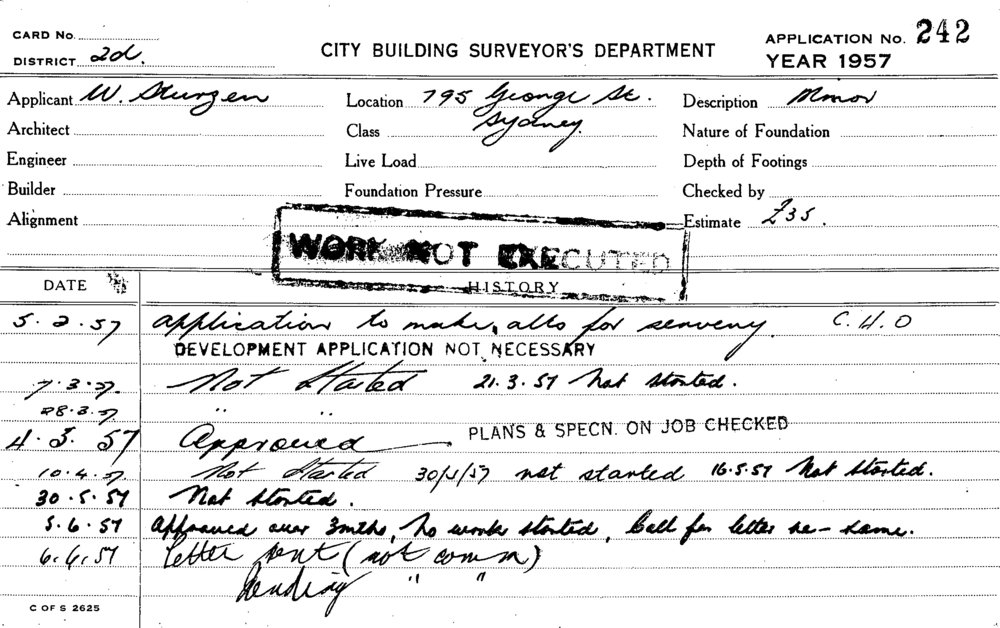 CARD No.
DISTRICT 2d.
CITY BUILDING SURVEYOR'S DEPARTMENT
APPLICATION No. 242
YEAR 1957
Applicant W. Location 795 George St. Description Minor
Architect Class Sydney. Nature of Foundation
Engineer Live Load Depth of Footings
Builder Foundation Pressure Checked by
Alignment Estimate £35.
WORK NOT EXECUTED
DATE HISTORY
5.2.57 application to make alts for C.H.O
DEVELOPMENT APPLICATION NOT NECESSARY
7.3.57. Not Started 21.3.57 Not Started.
28.3.57. " "
4.3.57 Approved PLANS & SPECN. ON JOB CHECKED
10.4.57 Not Started not started 16.5.57 Not Started.
30.5.57 Not Started.
5.6.57 Approved over 3mths, No works started, Call for letter re-same.
6.6.57 Letter sent (not comm)
Pending " "
C OF S 2625